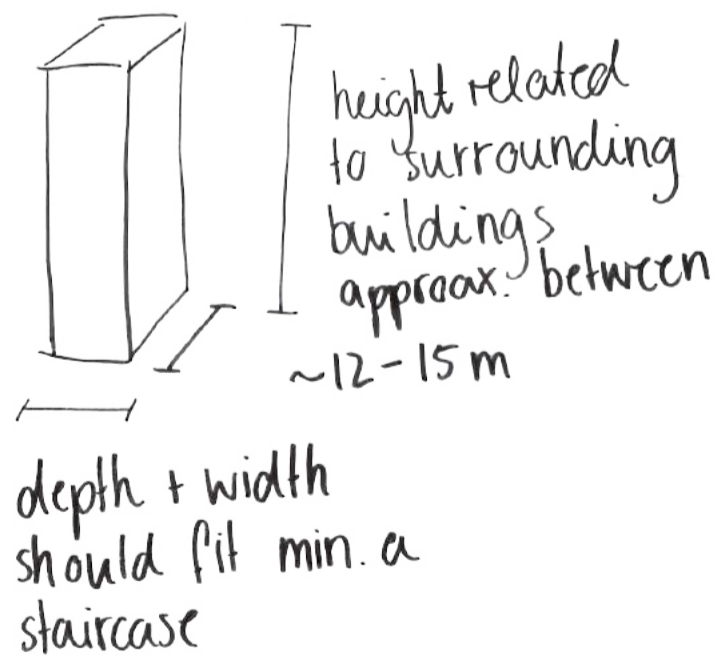 height related
to surrounding
buildings
approax. between
~12-15 m
depth + width
should fit min. a
staircase